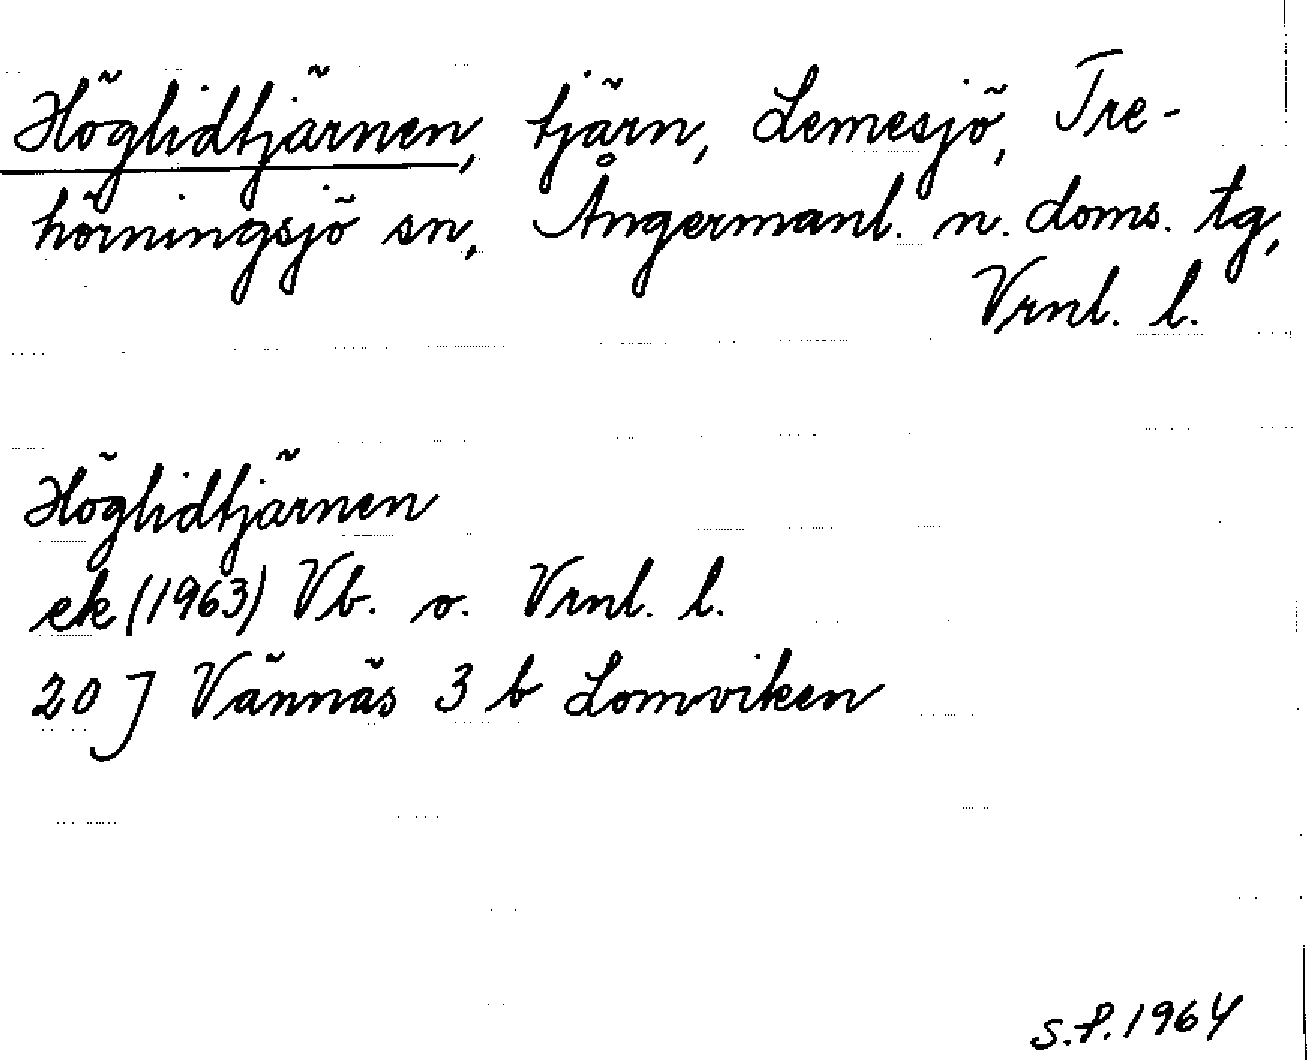 Höglidtjärnen, tjärn, Lemesjö, Tre-
hörningsjö sn, Ångermanl. n. doms. tg,
Vrnl. l.
Höglidtjärnen
ek (1963) Vb. o. Vrnl. l.
20 J Vännäs 3 b Lomviken
S.P. 1964